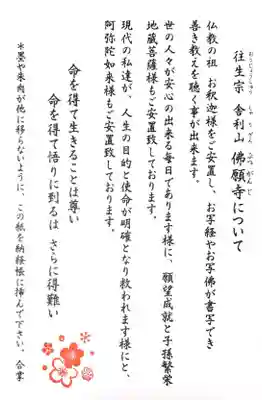 往生宗 舎利山 佛願寺について
おうじょうしゅう しゃりざん ぶつがんじ
仏教の祖 お釈迦様をご安置し、お写経やお写佛が書写でき
善き教えを聴く事が出来ます。
世の人々が安心の出来る毎日であります様に、願望成就と子孫繁栄
地蔵菩薩様もご安置致しております。
現代の私達が、人生の目的と使命が明確となり救われます様にと、
阿弥陀如来様もご安置致しております。
命を得て生きることは尊い
命を得て悟りに到るは さらに得難い
＊墨や朱肉が他に移らないように、この紙を納経帳に挿んで下さい。 合掌